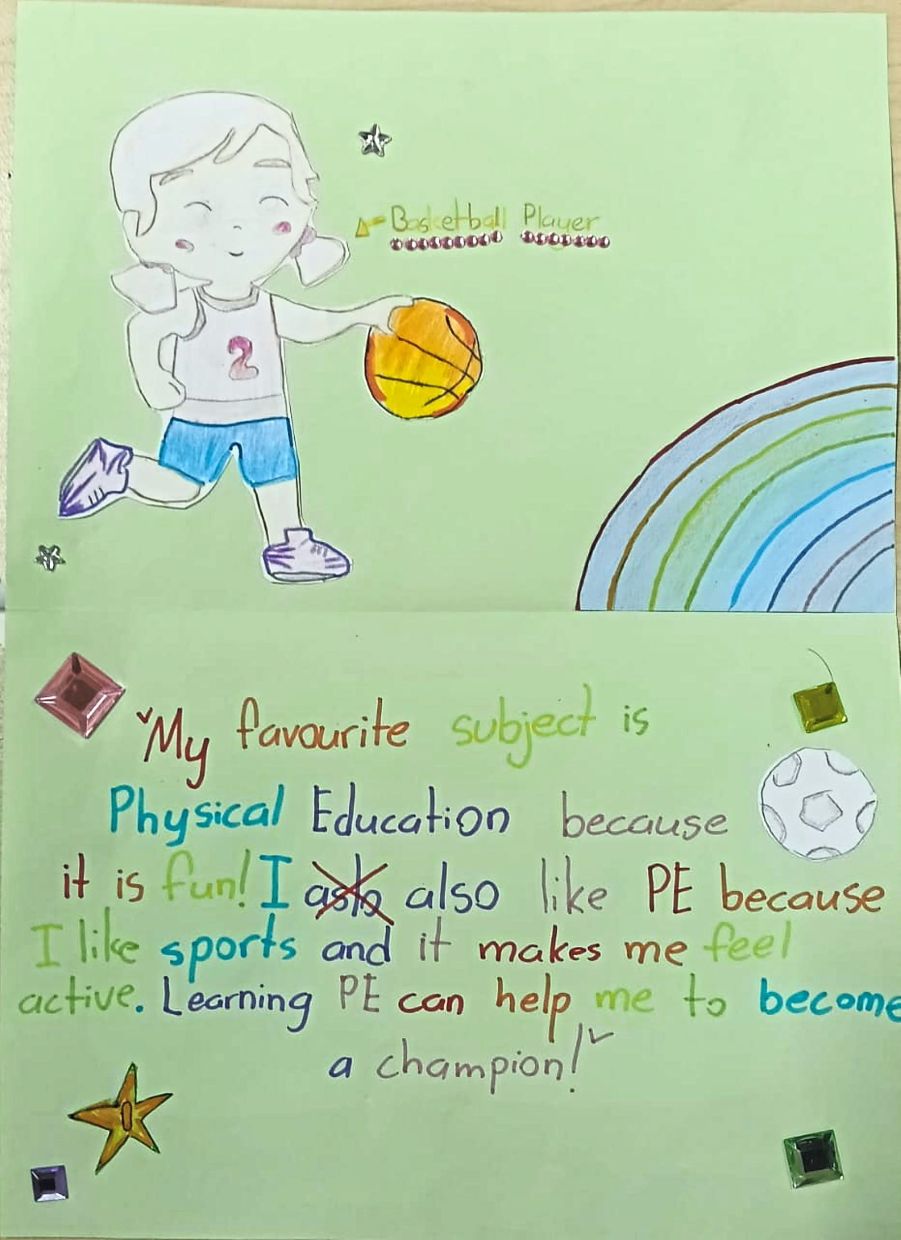 Basketball Player
2
"My favourite subject is
Physical Education because
it is fun! I aslo also like PE because
I like sports and it makes me feel
active. Learning PE can help me to become
a champion!"